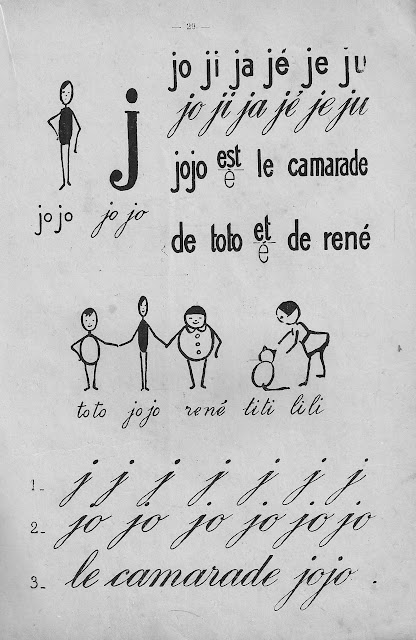 — 29 —
jo ji ja jé je ju
jo ji ja jé je ju
j
jojo est le camarade
ê
jojo jojo
de toto et de rené
ë
toto jojo rené titi lili
1_ j j j j j j j
2_ jo jo jo jo jo jo
3_ le camarade jojo .